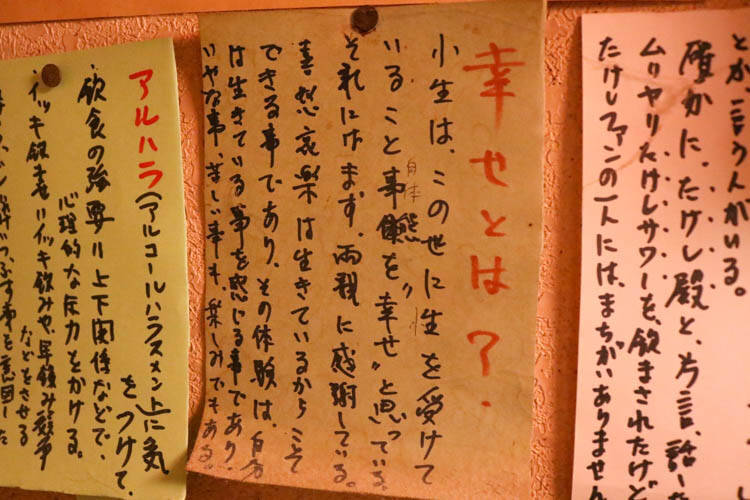 とか言うんがいる。
確かに、たけし殿と、少言、話
ムリヤリたけしサワーを、飲まされたけど
たけしファンの一人には、まちがいありません
幸せとは？
小生は、この世に生を受けて
いること事態を〝幸せ〟と思っている。
自体
それにけます。両親に感謝している。
喜怒哀楽は生きているからこそ
できる事であり、その体験は、自分
は生きている事を感じる事であり、
いやな事、楽しい事も、楽しみでもある。
アルハラ(アルコールハラスメント)に気
をつけて、
・飲食の強要＝上下関係などで、
心理的な圧力をかける。
・イッキ飲ませ＝イッキ飲みや、早飲み競争
などをさせる